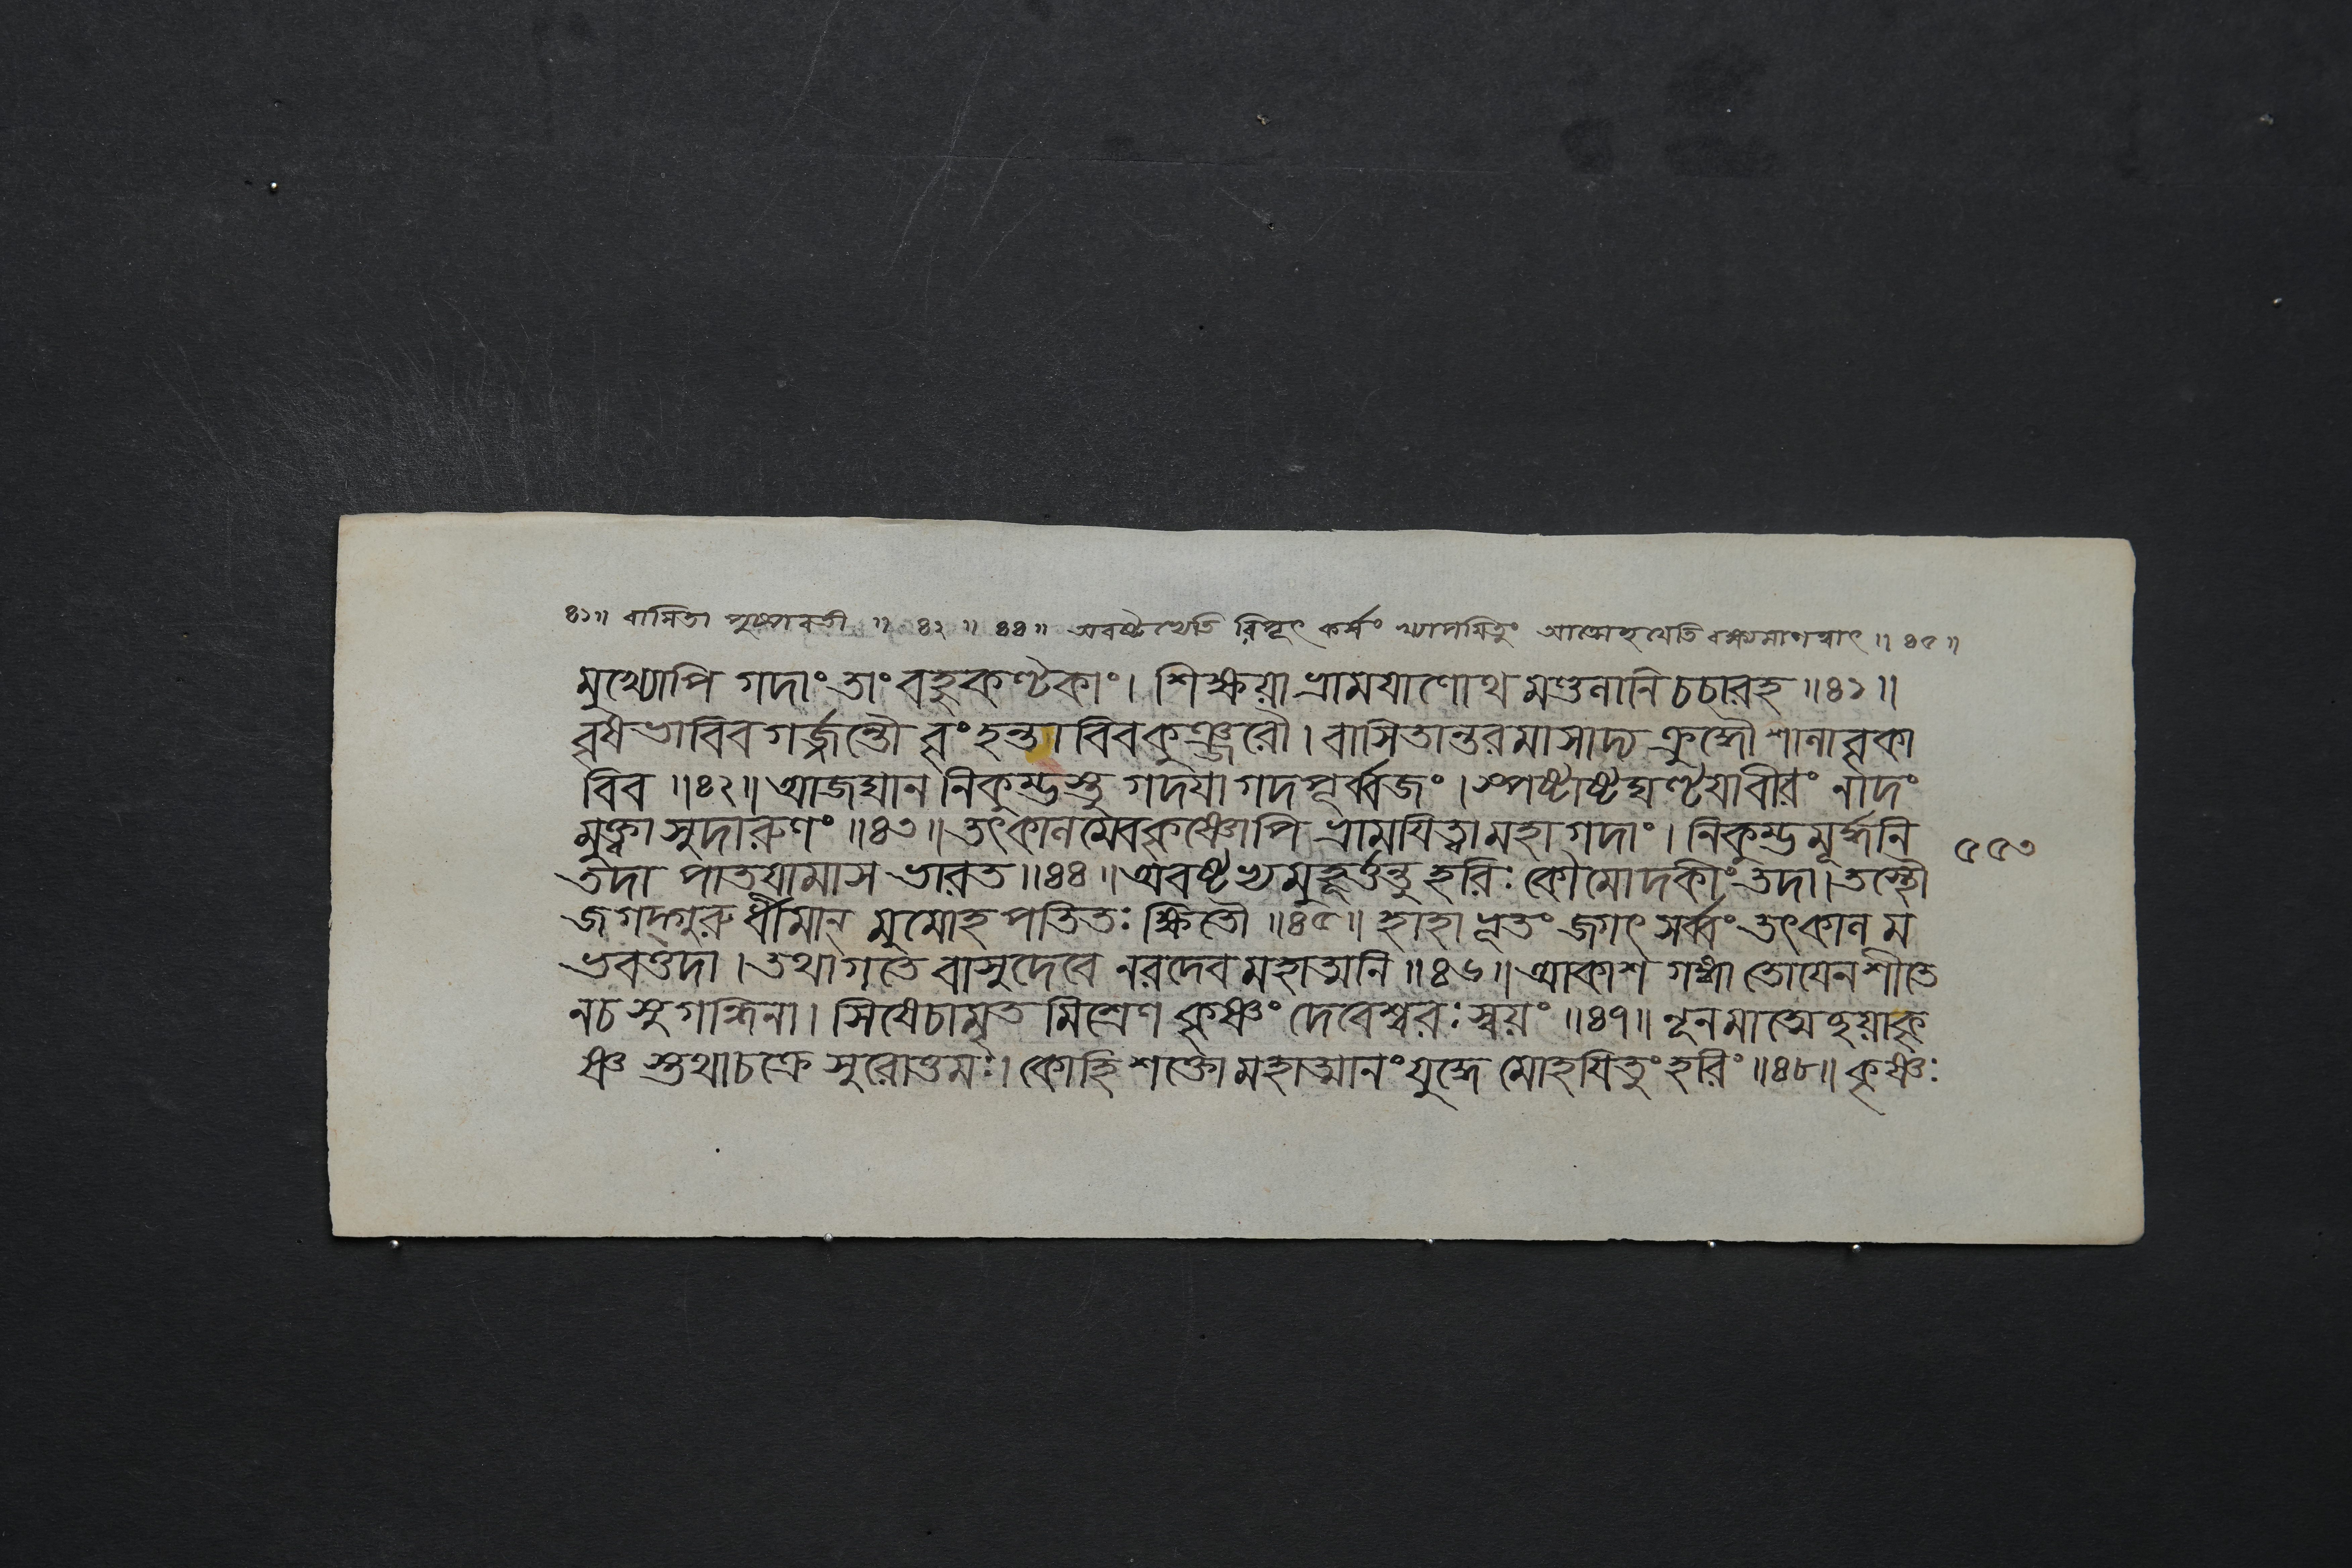 ৪১॥ বাসিতা পুষ্পবতী ॥ ৪২ ॥ ৪৪ ॥ অবষ্টভ্যেতি রিপূৎ কর্ষং খ্যাপয়িতুং আত্মেহয়েতি বক্ষ্যমাণত্বাৎ ॥ ৪৫ ॥
মুখ্যোপি গদাং তাং বহুকণ্টকাং। শিক্ষয়া ভ্রাময়াণোথ মণ্ডলানি চচারহ ॥৪১॥
বৃষভাবিব গর্জ্জন্তৌ বৃংহন্তাবিবকুঞ্জরৌ। বাসিতান্তরমাসাদ্য ক্রুদ্ধৌ শালাবৃকা
বিব ॥৪২॥ আজঘান নিকুম্ভস্তু গদয়া গদপূর্ব্বজং। স্পষ্টাষ্টঘণ্টয়াবীরং নাদং
মুক্ত্বা সুদারুণং ॥৪৩॥ তৎকালমেবকৃষ্ণোপি ভ্রাময়িত্বা মহাগদাং। নিকুম্ভমূর্দ্ধনি
তদা পাতয়ামাস ভারত ॥৪৪॥ অবষ্টভ্যমুহূর্ত্তন্তু হরিঃ কৌমোদকীং তদা। তস্থৌ
জগদ্গুরুর্ধীমান্ মুমোহ পতিতঃ ক্ষিতৌ ॥৪৫॥ হাহাভূতং জগৎ সর্ব্বং তৎকালম
ভবত্তদা। তথাগতে বাসুদেবে নরদেব মহাত্মনি ॥৪৬॥ আকাশ গঙ্গা তোয়েন শীতে
নচ সুগন্ধিনা। সিষেচামৃত মিশ্রেণ কৃষ্ণং দেবেশ্বরঃ স্বয়ং ॥৪৭॥ নূনমাত্মেহয়াকৃ
ষ্ণ স্তথাচক্রে সুরোত্তমঃ। কোহি শক্তো মহাত্মানং যুদ্ধে মোহয়িতুং হরিং ॥৪৮॥ কৃষ্ণঃ
৫৫৩